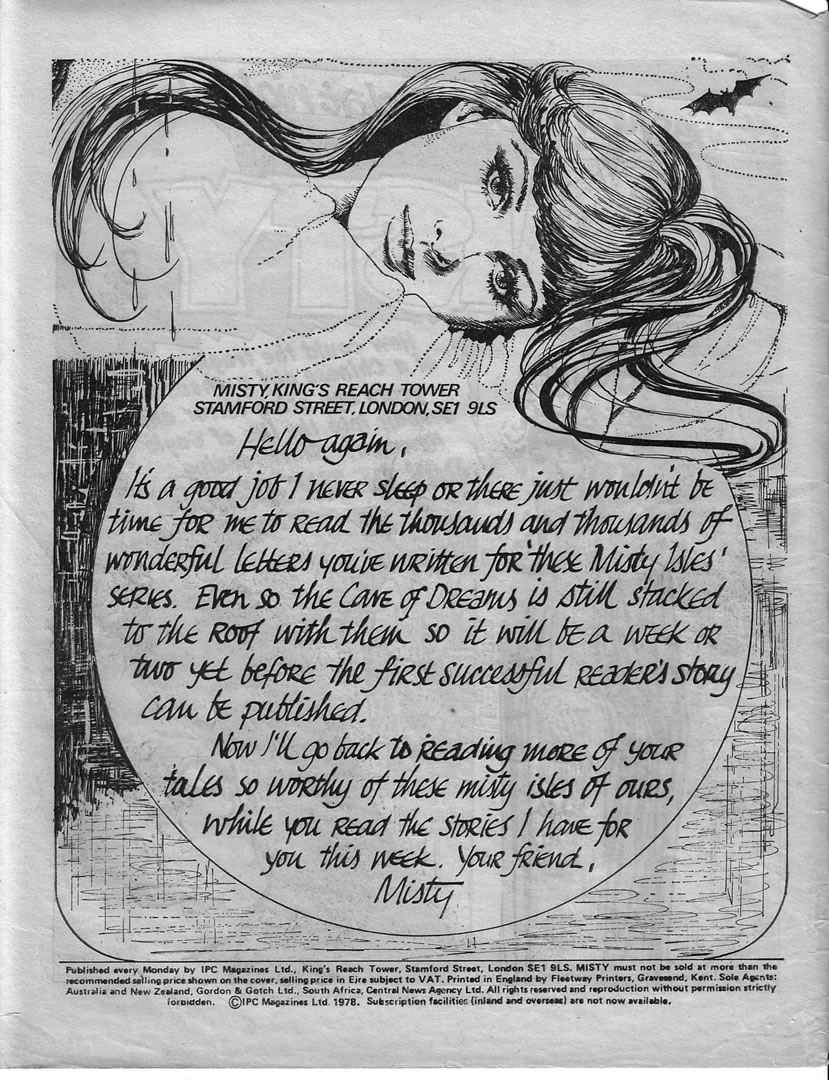 MISTY, KING'S REACH TOWER
STAMFORD STREET, LONDON, SE1 9LS
Hello again,
It's a good job I never sleep or there just wouldn't be
time for me to read the thousands and thousands of
wonderful letters you've written for 'these Misty Isles'
series. Even so the Cave of Dreams is still stacked
to the roof with them so it will be a week or
two yet before the first successful reader's story
can be published.
Now I'll go back to reading more of your
tales so worthy of these misty isles of ours,
while you read the stories I have for
you this week. Your friend,
Misty
Published every Monday by IPC Magazines Ltd., King's Reach Tower, Stamford Street, London SE1 9LS. MISTY must not be sold at more than the
recommended selling price shown on the cover, selling price in Eire subject to VAT. Printed in England by Fleetway Printers, Gravesend, Kent. Sole Agents:
Australia and New Zealand, Gordon & Gotch Ltd., South Africa, Central News Agency Ltd. All rights reserved and reproduction without permission strictly
forbidden. ©IPC Magazines Ltd. 1978. Subscription facilities (inland and overseas) are not now available.